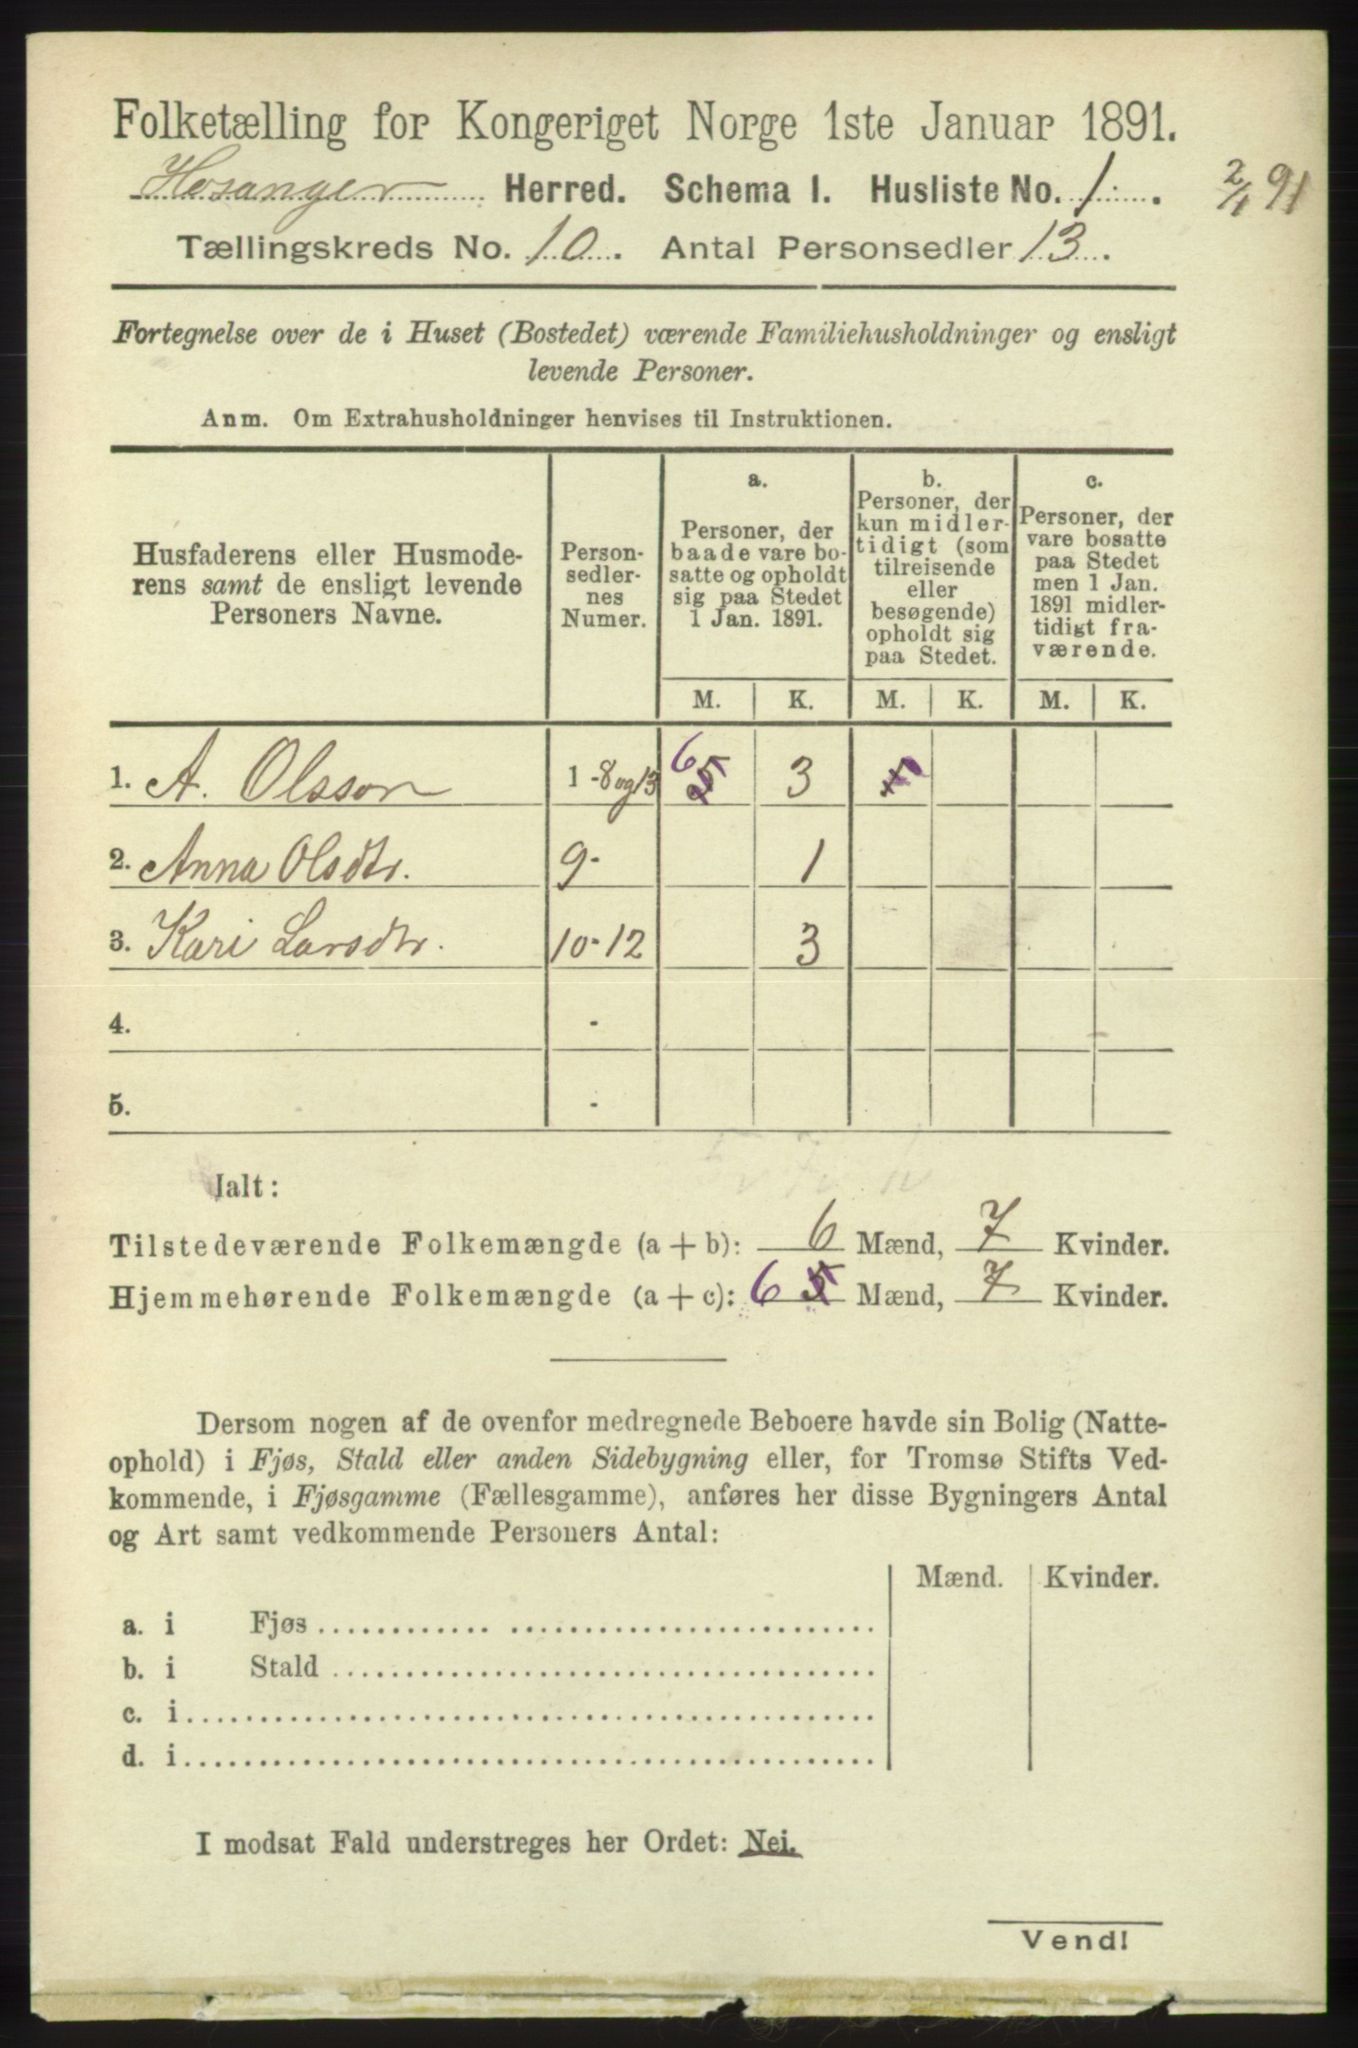 Folketælling for Kongeriget Norge 1ste Januar 1891.
Hosanger Herred. Schema I. Husliste No. 1. 2/1 91
Tællingskreds No. 10. Antal Personsedler 13.
Fortegnelse over de i Huset (Bostedet) værende Familiehusholdninger og ensligt
levende Personer.
Anm. Om Extrahusholdninger henvises til Instruktionen.
Husfaderens eller Husmode-
rens samt de ensligt levende
Personers Navne.
Person-
sedler-
nes
Numer.
a.
Personer, der
baade vare bo-
satte og opholdt
sig paa Stedet
1 Jan. 1891.
b.
Personer, der
kun midler-
tidigt (som
tilreisende
eller
besøgende)
opholdt sig
paa Stedet.
c.
Personer, der
vare bosatte
paa Stedet
men 1 Jan.
1891 midler-
tidigt fra-
værende.
M. K. M. K. M. K.
1. A. Olsson 1-8 og 13 6 5 3 1
2. Anna Olsdtr. 9- 1
3. Kari Larsdtr. 10-12 3
4. -
5. -
Ialt:
Tilstedeværende Folkemængde (a + b): 6 Mænd, 7 Kvinder.
Hjemmehørende Folkemængde (a + c): 6 5 Mænd, 7 Kvinder.
Dersom nogen af de ovenfor medregnede Beboere havde sin Bolig (Natte-
ophold) i Fjøs, Stald eller anden Sidebygning eller, for Tromsø Stifts Ved-
kommende, i Fjøsgamme (Fællesgamme), anføres her disse Bygningers Antal
og Art samt vedkommende Personers Antal:
Mænd. Kvinder.
a. i Fjøs
b. i Stald
c. i
d. i
I modsat Fald understreges her Ordet: Nei.
Vend!